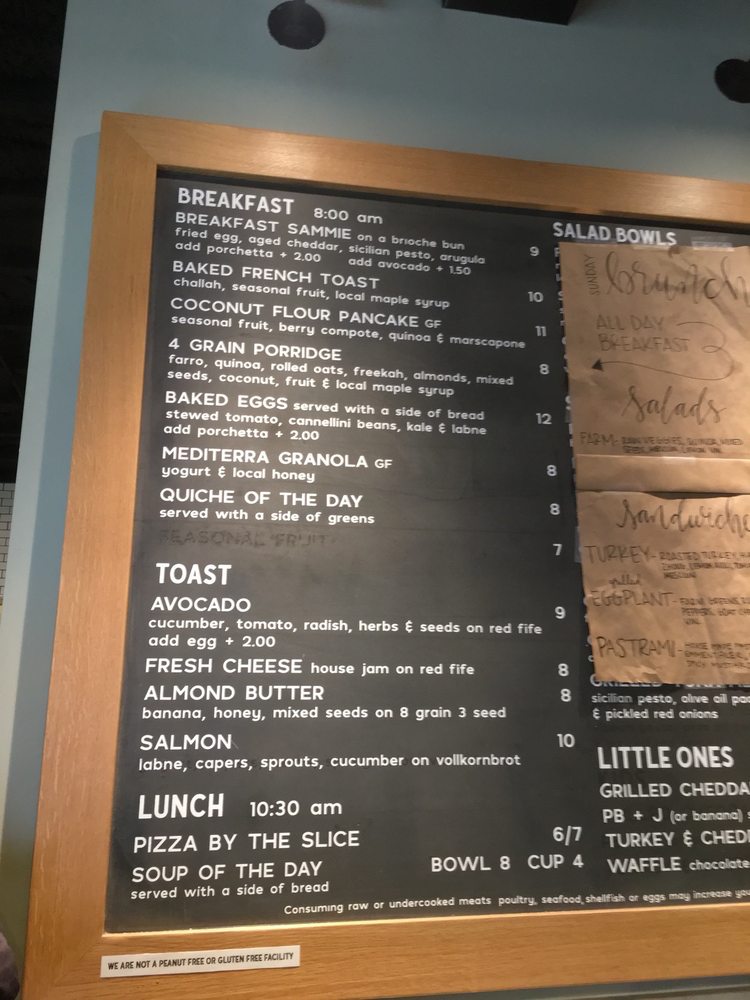 BREAKFAST 8:00 am
BREAKFAST SAMMIE on a brioche bun 9
fried egg, aged cheddar, sicilian pesto, arugula
add porchetta + 2.00 add avocado + 1.50
BAKED FRENCH TOAST 10
challah, seasonal fruit, local maple syrup
COCONUT FLOUR PANCAKE GF 11
seasonal fruit, berry compote, quinoa & marscapone
4 GRAIN PORRIDGE 8
farro, quinoa, rolled oats, freekah, almonds, mixed
seeds, coconut, fruit & local maple syrup
BAKED EGGS served with a side of bread 12
stewed tomato, cannellini beans, kale & labne
add porchetta + 2.00
MEDITERRA GRANOLA GF 8
yogurt & local honey
QUICHE OF THE DAY 8
served with a side of greens
SEASONAL FRUIT 7
TOAST
AVOCADO 9
cucumber, tomato, radish, herbs & seeds on red fife
add egg + 2.00
FRESH CHEESE house jam on red fife 8
ALMOND BUTTER 8
banana, honey, mixed seeds on 8 grain 3 seed
SALMON 10
labne, capers, sprouts, cucumber on vollkornbrot
LUNCH 10:30 am
PIZZA BY THE SLICE 6/7
SOUP OF THE DAY BOWL 8 CUP 4
served with a side of bread
SALAD BOWLS
SUNDAY
brunch
ALL DAY
BREAKFAST
Salads
FARM- RAW VEGGIES, QUINOA, MIXED
Sandwiche
TURKEY- ROASTED TURKEY,
grilled
EGGPLANT-
PASTRAMI- HOUSE MADE
sicilian pesto, olive oil
& pickled red onions
LITTLE ONES
GRILLED CHEDDA
PB + J (or banana)
TURKEY & CHED
WAFFLE chocolate
Consuming raw or undercooked meats poultry, seafood, shellfish or eggs may increase you
WE ARE NOT A PEANUT FREE OR GLUTEN FREE FACILITY